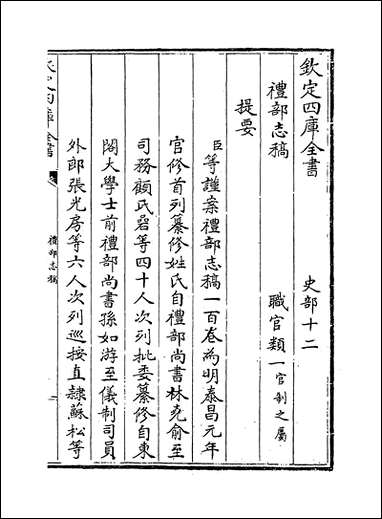 欽定四庫全書　史部十二
禮部志稿　職官類一官制之屬
提要
臣等謹案禮部志稿一百卷為明泰昌元年
官修首列纂修姓氏自禮部尚書林堯俞至
司務顧民碞等四十人次列批委纂修自東
閣大學士前禮部尚書孫如游至儀制司員
外郎張光房等六人次列巡按直隸蘇松等
欽定四庫全書
禮部志稿